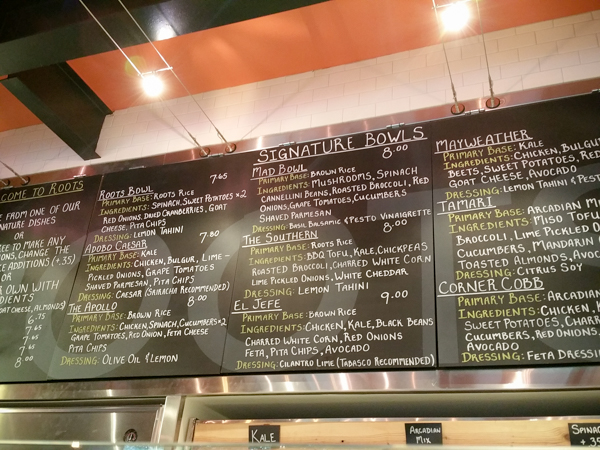 COME TO ROOTS
E FROM ONE OF OUR
NATURE DISHES
OR
EE TO MAKE ANY
ONS, CHANGE THE
ADDITIVES (+.35)
OR
R OWN WITH
DIENTS
OAT CHEESE, ALMONDS)
6.75
7.45
7.45
7.65
8.00
ROOTS BOWL 7.45
PRIMARY BASE: ROOTS RICE
INGREDIENTS: SPINACH, SWEET POTATOES ×2
RED ONIONS, DRIED CRANBERRIES, GOAT
CHEESE, PITA CHIPS
DRESSING: LEMON TAHINI
ADOBO CAESAR 7.80
PRIMARY BASE: KALE
INGREDIENTS: CHICKEN, BULGUR, LIME-
PICKLED ONIONS, GRAPE TOMATOES
SHAVED PARMESAN, PITA CHIPS
DRESSING: CAESAR (SRIRACHA RECOMMENDED)
THE APOLLO 8.00
PRIMARY BASE: BROWN RICE
INGREDIENTS: CHICKEN, SPINACH, CUCUMBERS ×2
GRAPE TOMATOES, RED ONION, FETA CHEESE
PITA CHIPS
DRESSING: OLIVE OIL & LEMON
SIGNATURE BOWLS
MAD BOWL 8.00
PRIMARY BASE: BROWN RICE
INGREDIENTS: MUSHROOMS, SPINACH
CANNELLINI BEANS, ROASTED BROCCOLI, RED
ONIONS, GRAPE TOMATOES, CUCUMBERS
SHAVED PARMESAN
DRESSING: BASIL BALSAMIC & PESTO VINAIGRETTE
THE SOUTHERN 8.00
PRIMARY BASE: ROOTS RICE
INGREDIENTS: BBQ TOFU, KALE, CHICKPEAS
ROASTED BROCCOLI, CHARRED WHITE CORN
LIME PICKLED ONIONS, WHITE CHEDDAR
DRESSING: LEMON TAHINI
EL JEFE 9.00
PRIMARY BASE: BROWN RICE
INGREDIENTS: CHICKEN, KALE, BLACK BEANS
CHARRED WHITE CORN, RED ONIONS
FETA, PITA CHIPS, AVOCADO
DRESSING: CILANTRO LIME (TABASCO RECOMMENDED)
MAYWEATHER
PRIMARY BASE: KALE
INGREDIENTS: CHICKEN, BULGU
BEETS, SWEET POTATOES, RED
GOAT CHEESE, AVOCADO
DRESSING: LEMON TAHINI & PEST
TAMARI
PRIMARY BASE: ARCADIAN MI
INGREDIENTS: MISO TOFU
BROCCOLI, LIME PICKLED O
CUCUMBERS, MANDARIN
TOASTED ALMONDS, AVOC
DRESSING: CITRUS SOY
CORNER COBB
PRIMARY BASE: ARCADIAN
INGREDIENTS: CHICKEN,
SWEET POTATOES, CHARR
CUCUMBERS, RED ONIONS,
AVOCADO
DRESSING: FETA DRESSIN
KALE
ARCADIAN
MIX
SPINAC
+.35